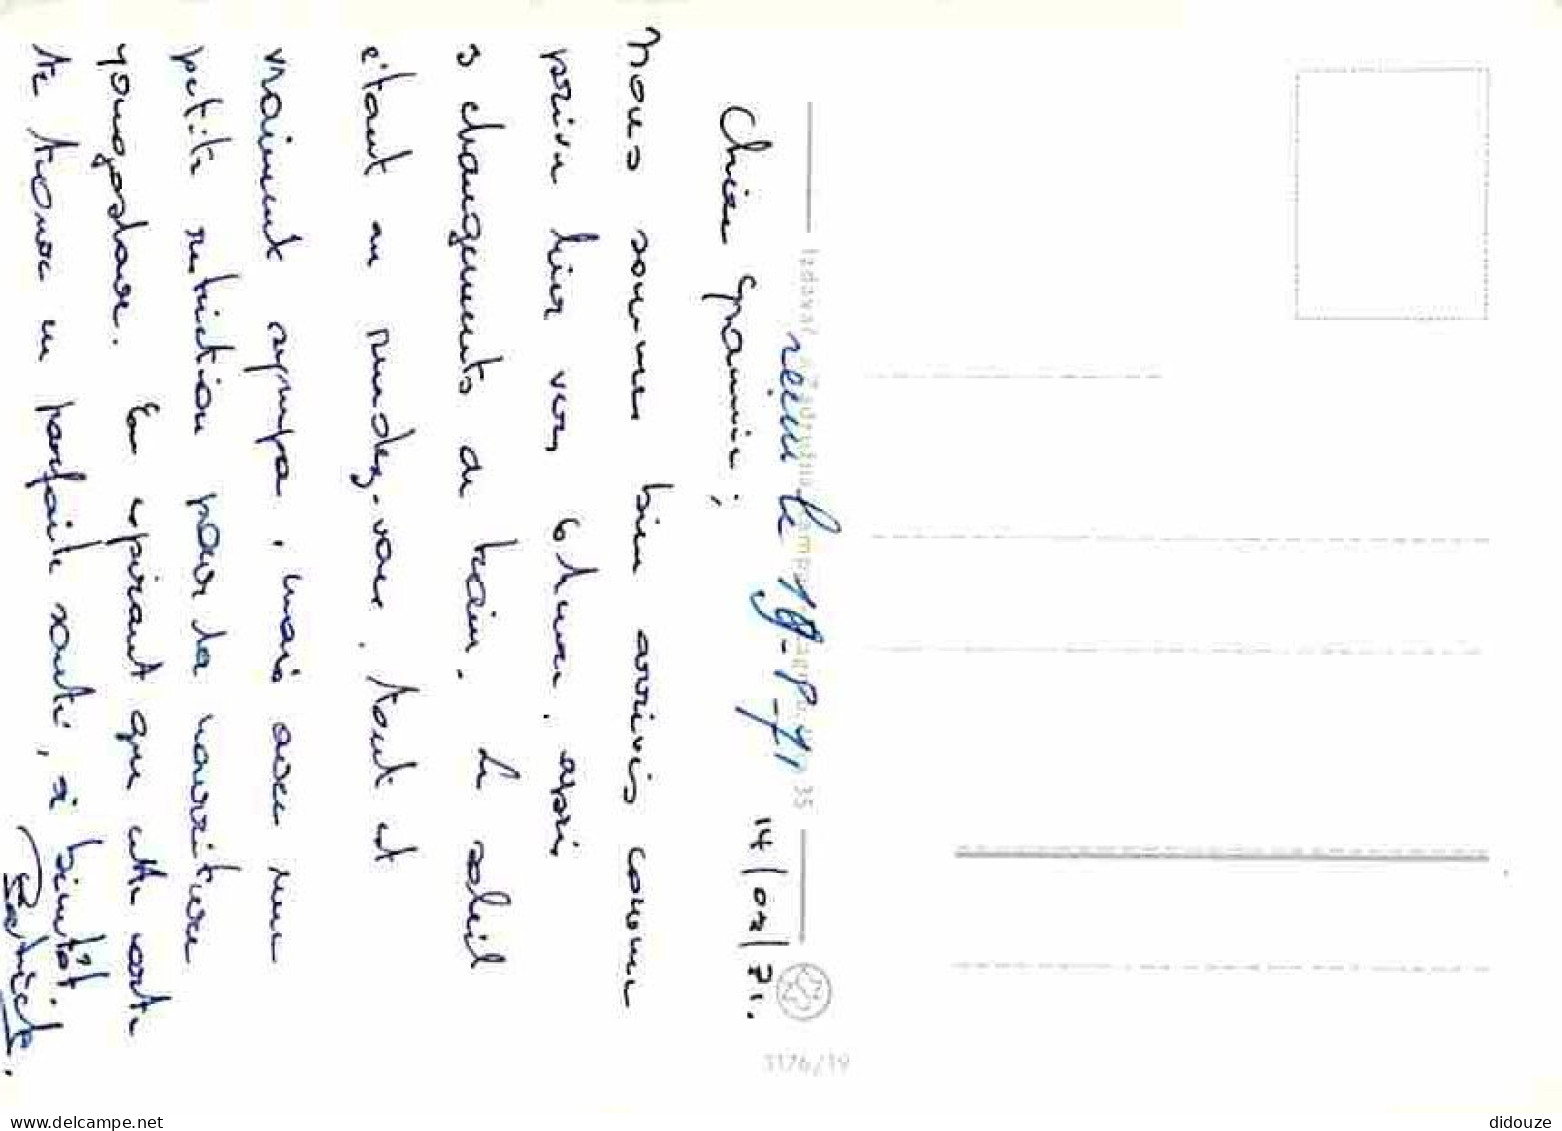 reçu le 19-8-71
14/08/71.
Chère Grannie ;
Nous sommes bien arrivés comme
prévu hier vers 6 heures. après
3 changements de train. Le soleil
étant au rendez-vous. tout est
vraiment sympa, mais avec une
petite restriction pour la nourriture
yougoslave. En espérant que cette carte
te trouve en parfaite santé, à bientôt
35
3176/19
www.delcampe.net
didouze